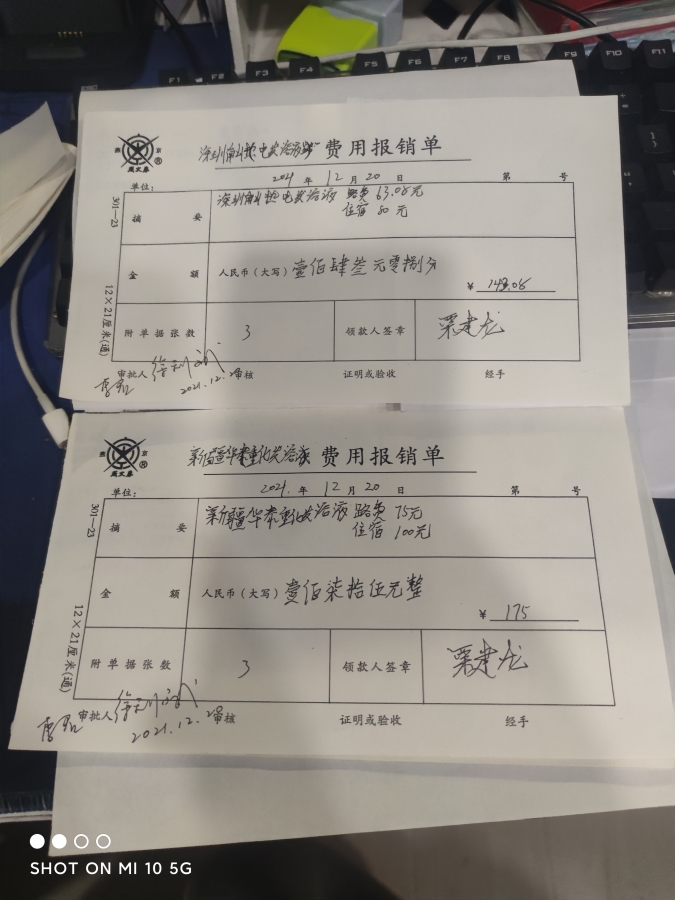 燕 京 ®
成文厚
费用报销单
2021 年 12 月 20 日 第 号
单位:
301—23
12×21厘米(通)
摘 要
路费 63.08元
住宿 80元
金 额
人民币(大写) 壹佰肆叁元零捌分
¥ 143.08
附单据张数 3 领款人签章
审批人 2021.12.20 审核 证明或验收 经手
燕 京 ®
成文厚
新疆华泰重化 费用报销单
2021. 年 12 月 20 日 第 号
单位:
301—23
12×21厘米(通)
摘 要
新疆华泰重化 路费 75元
住宿 100元
金 额
人民币(大写) 壹佰柒拾伍元整
¥ 175
附单据张数 3 领款人签章
审批人 2021.12.20 审核 证明或验收 经手
F1 F2 F3 F4 F5 F6 F7 F8 F9 F10 F11
SHOT ON MI 10 5G